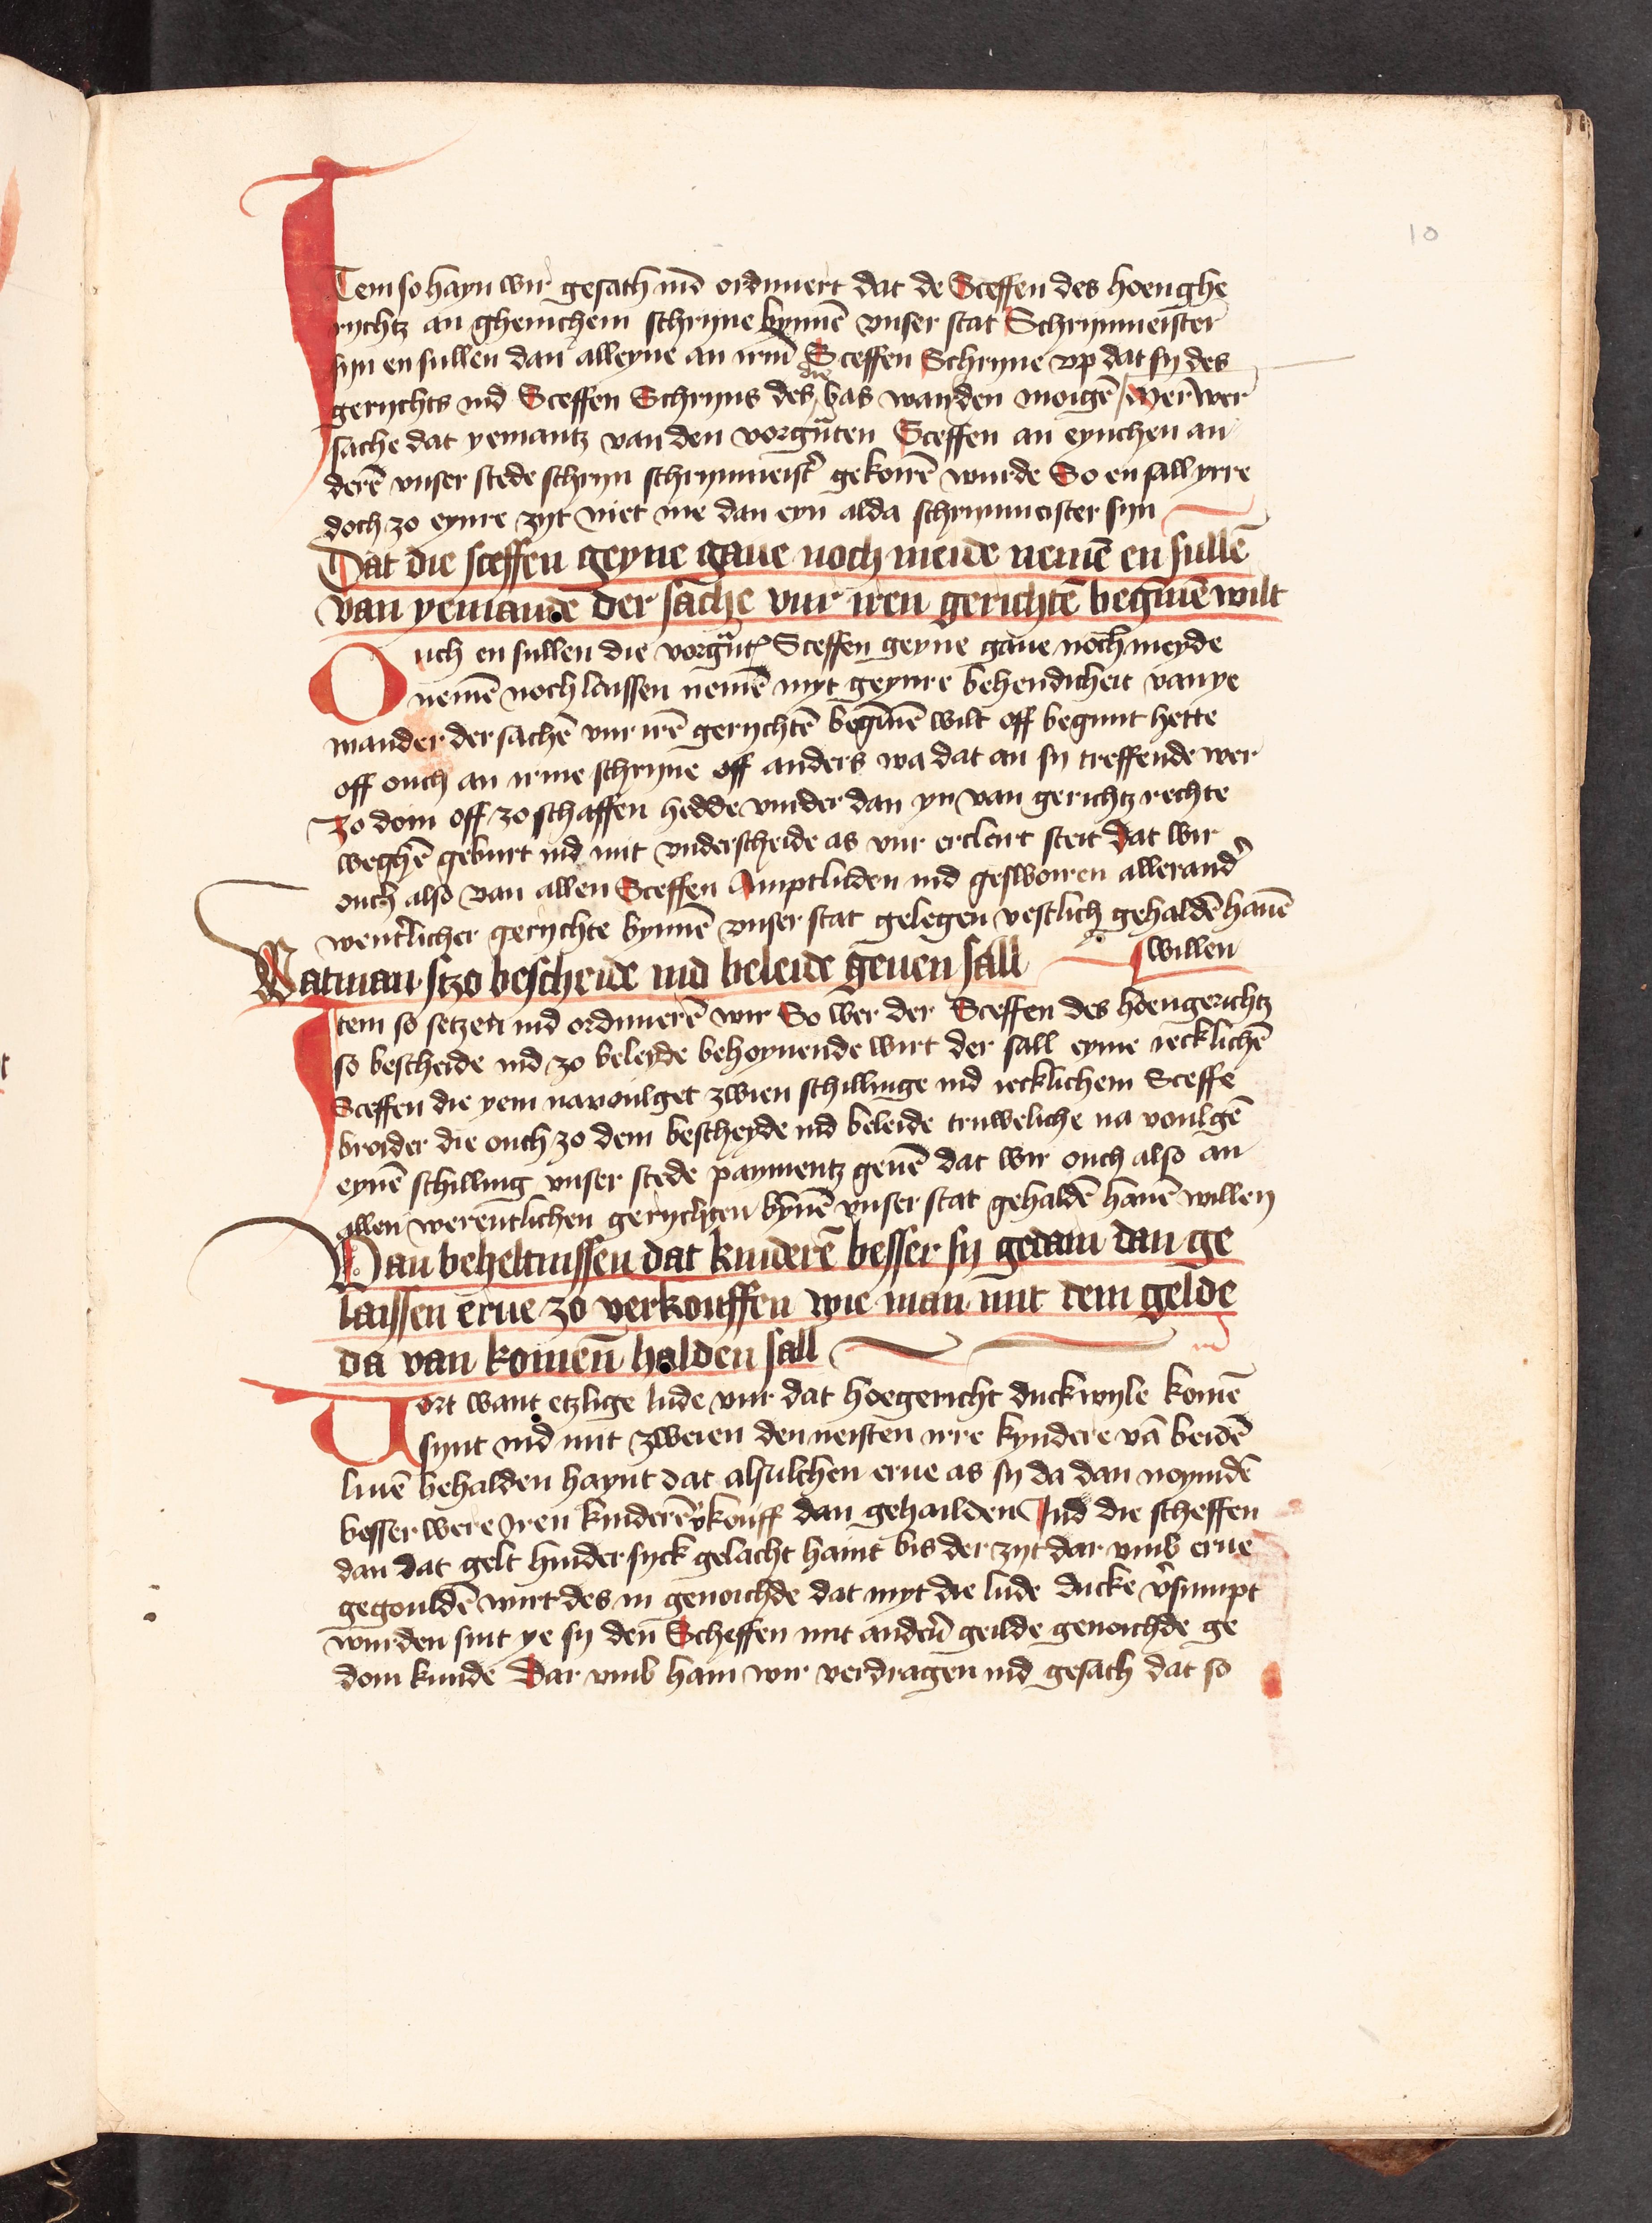 10
Item so hayn wir gesath ind ordinniert dat de Sceffen des hoenghe
rychtz an gheinchem schryne bynnē vnser stat Schrynmeister
syn en sullen dan alleyne an irm Sceffen Schryne vp dat sy des
gerychts ind Sceffen Schryns des die bas warden moigē / Wer wer
sache dat yemantz van den vorgn̄ten Sceffen an eynchen an
derē vnser stede schryn schrynmeist' gekorē wurde So en sall yrre
doch zo eynre zyt niet me dan eyn alda schrynmeister syn
Dat die sceffen geyne gaue noch meide nemē en sullē
van yemande der sache vur iren gerichtē begīnē wilt
Ouch en sullen die vorgn̄t' Sceffen geyne gaue noch meyde
nemē noch laissen nemē myt geynre behendicheit van ye
mander der sachē vur irē gerychtē begīnē wilt off begunt hette
off ouch an irme schryne off anders wa dat an sy treffende wer
zo doin off zo schaffen hedde vmder dan yn van gerichtz rechte
weghē geburt ind mit vnderscheide as vur ercleirt steit Dat wir
ouch also van allen Sceffen Amptluden ind geswoiren allerand'
wentlicher gerychte bynnē vnser stat gelegen vestlich gehaldē hauē
willen
Wat man stzo bescheide ind beleide geuen sall
Item so setzen ind ordinnierē wir So wer der Sceffen des hoengerichtz
so bescheide ind zo beleyde behoyuende wirt der sall eyme iecklichē
Sceffen die yem navoulget zwien schillinge ind iecklichem Sceffē
broider die ouch zo dem bescheyde ind beleide truweliche na voulgē
eynē schilling vnser stede paymentz geuē dat wir ouch also an
allen werentlichen gerychten bynē vnser stat gehaldē hauē willen
Van beheltnissen dat kinderē besser sy gedain dan ge
laissen erue zo verkouffen wie man mit dem gelde
da van komen halden sall
Vort want etzlige lude vur dat hoegericht duckwyle komē
synt ind mit zweien den neisten irre kyndere vā beidē
siden behalden haynt dat alsulchen erue as sy da dan noymdē
besser were Iren kinderē v'kouff dan gehailden Ind die scheffen
dan dat gelt hinder syck gelacht haint bis der zyt dar vmb erue
gegouldē wirt des in genoichde dat myt die lude ducke v'sumpt
wurden sint ye sy den Scheffen mit andern geilde genoichde ge
doin kunde Dar vmb hain wir verdragen ind gesath dat so